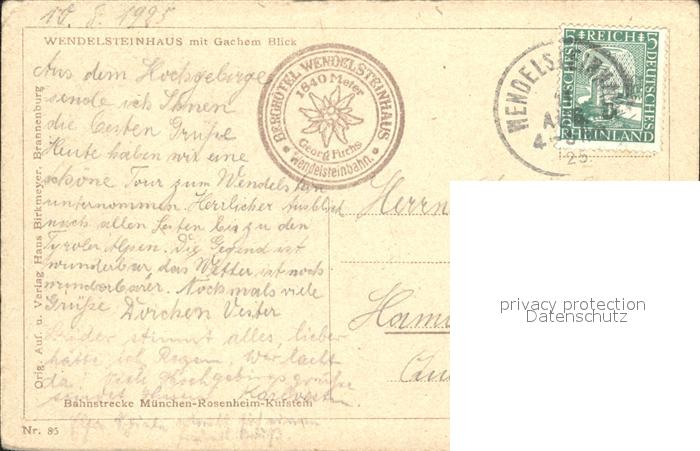 10. 8. 1925
WENDELSTEINHAUS mit Gachem Blick
Aus dem Hochgebirge
sende ich Ihnen
die besten Grüße
Heute haben wir eine
schöne Tour zum Wendelstein
unternommen. Herrlicher Ausblick
nach allen Seiten bis zu den
Tyroler Alpen. Die Gegend ist
wunderbar, das Wetter ist noch
wunderbarer. Nochmals viele
Grüße Dorchen Vester
Leider stimmt alles, lieber
hätte ich Regen. Wer lacht
da?
Bahnstrecke München-Rosenheim-Kufstein
Nr. 85
Orig. Auf. u. Verlag Hans Birkmeyer, Brannenburg
BERGHOTEL WENDELSTEINHAUS
1840 Meter
Georg Fuchs
Wendelsteinbahn.
WENDELST
25
5 REICH 5
DEUTSCHES
DEUTSCHES
RHEINLAND
Herrn
privacy protection
Datenschutz